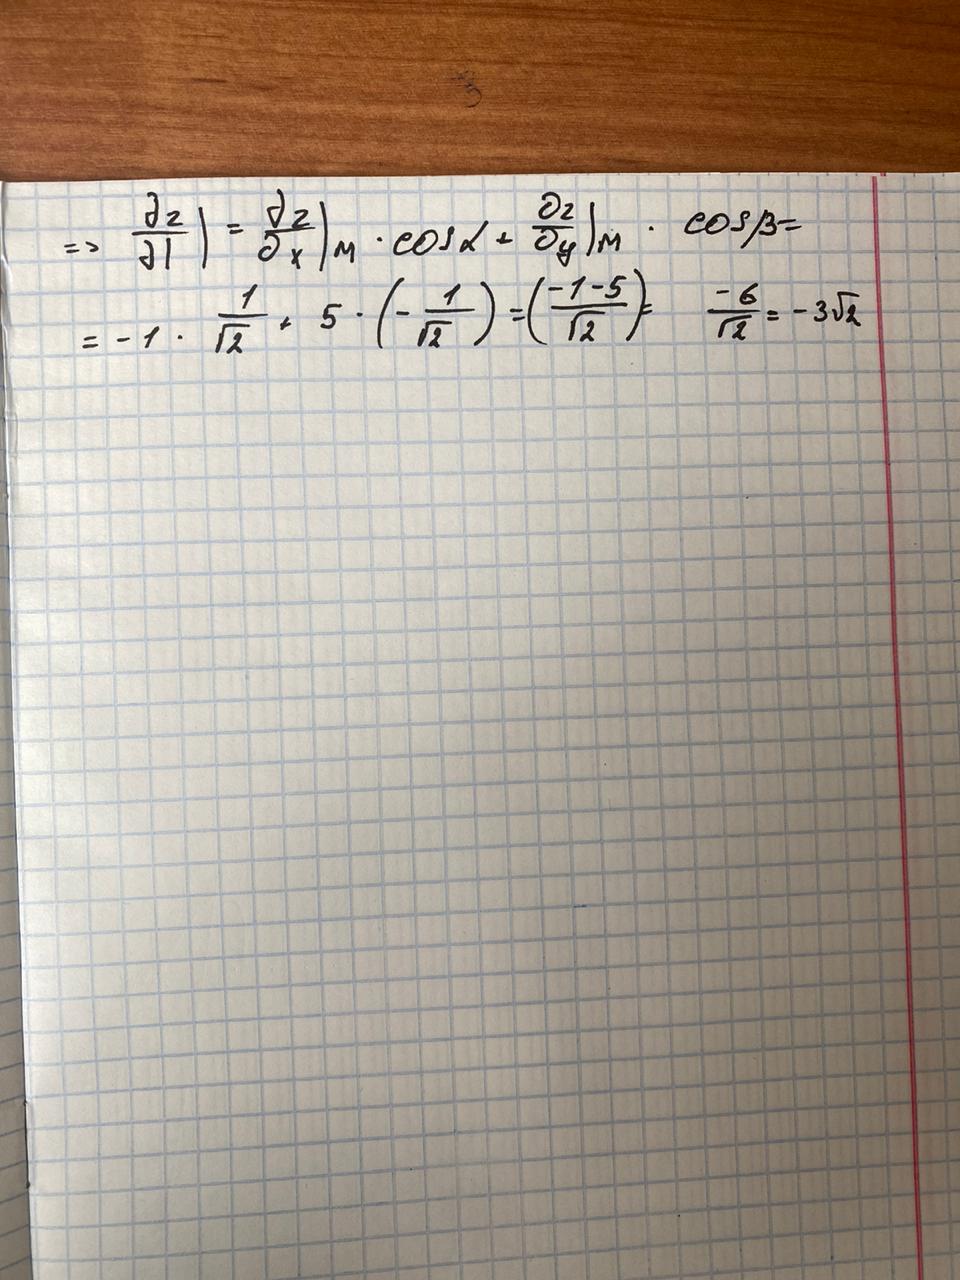 => ∂z/∂l | = ∂z/∂x |м · cosα + ∂z/∂y |м · cosβ =
= -1 · 1/√2 + 5 · (- 1/√2) = (-1-5/√2) = -6/√2 = -3√2